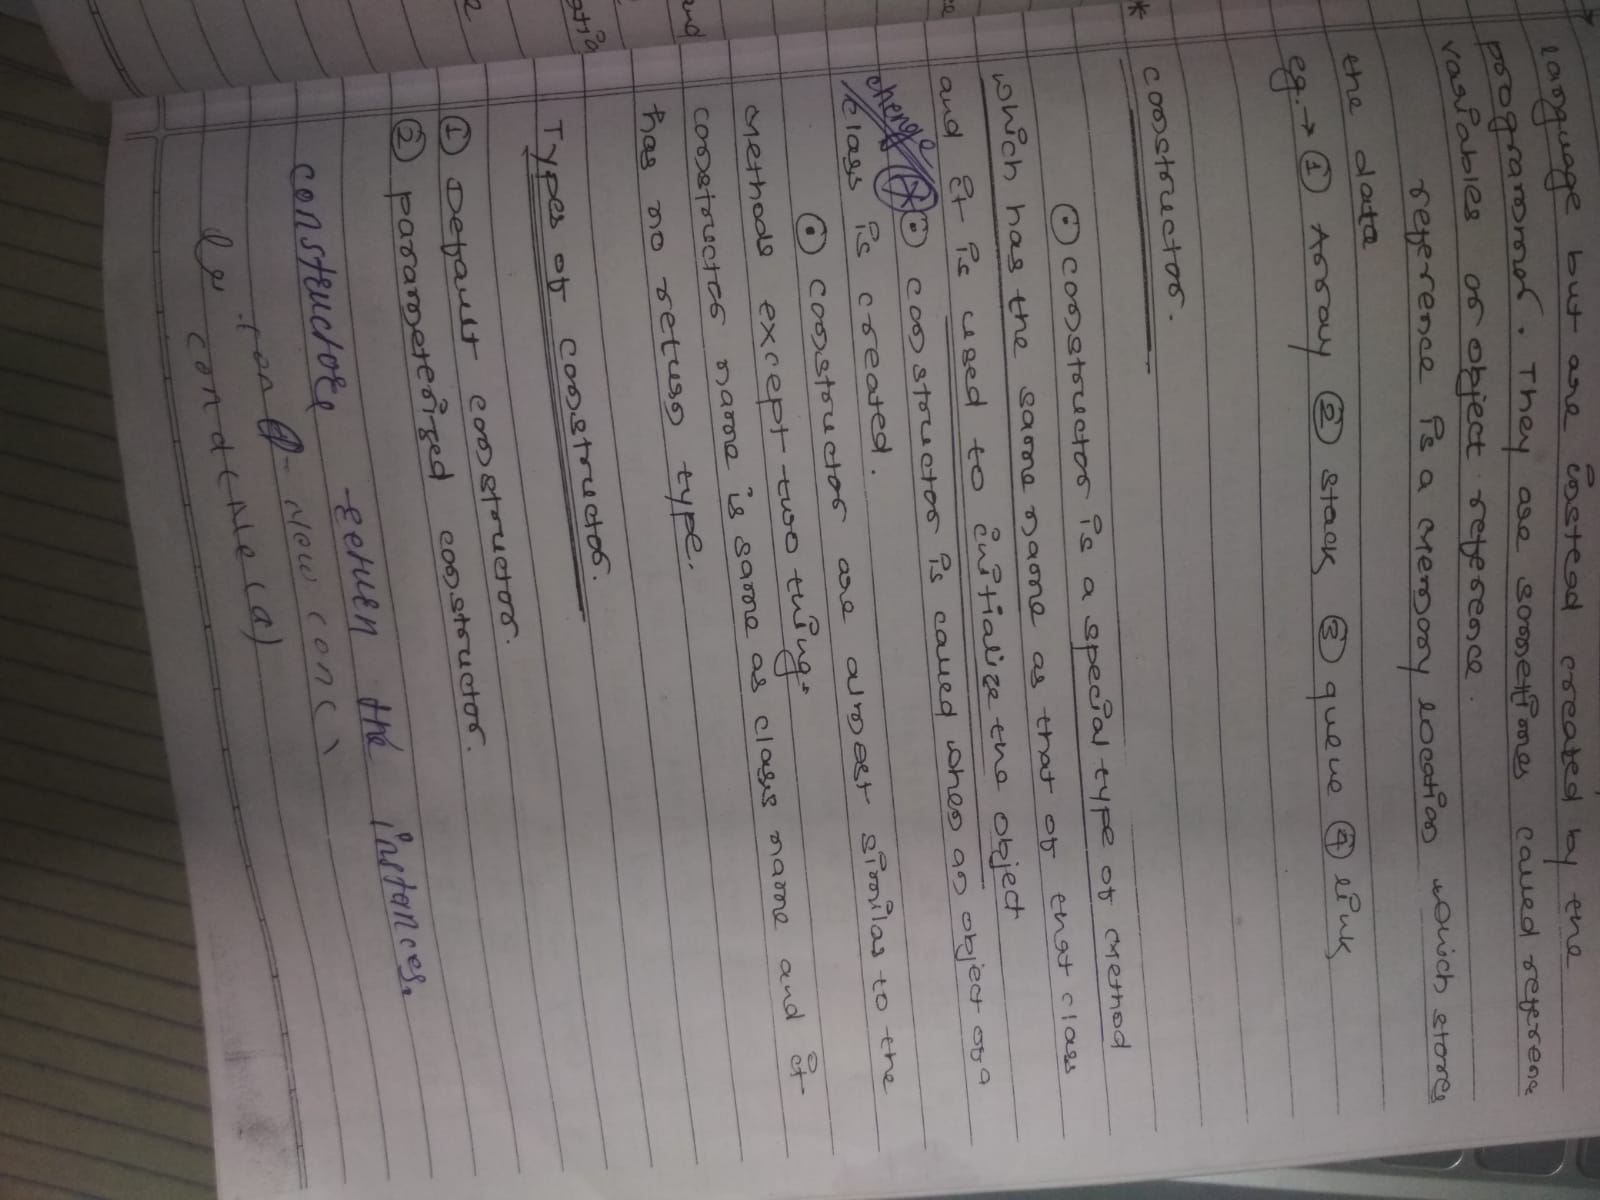 language but are instead created by the
programmer. They are sometimes called referenc
variables or object reference.
reference is a memory location which stores
the data
eg. → ① Array ② stack ③ queue ④ link
* constructor.
⊙ constructor is a special type of method
which has the same name as that of that class
and it is used to initialize the object
⊙ constructor is called when an object of a
class is created.
⊙ constructor are almost similar to the
methods except two things
constructor name is same as class name and it
has no return type.
Types of constructor.
① Default constructor.
② parameterized constructor.
constructore return the instances.
new con( )